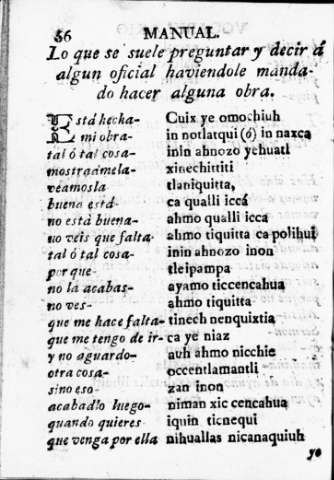 56 MANUAL.
Lo que se suele preguntar y decir á
algun oficial haviendole manda-
do hacer alguna obra.
Está hecha- Cuix ye omochiuh
mi obra- in notlatqui (ó) in naxca
tal ó tal cosa- inin ahnozo yehuatl
mostradmela- xinechititi
veamosla tlaniquitta,
buena está- ca qualli iccá
no está buena- ahmo qualli icca
no veis que falta- ahmo tiquitta ca polihui
tal ó tal cosa- inin ahnozo inon
por que- tleipampa
no la acabas- ayamo ticcencahua
no ves- ahmo tiquitta
que me hace falta- tinech nenquixtia
que me tengo de ir- ca ye niaz
y no aguardo- auh ahmo nicchie
otra cosa- occentlamantli
sino eso- zan inon
acabadlo luego- niman xic cencahua
quando quieres- iquin ticnequi
que venga por ella nihuallas nicanaquiuh
yo